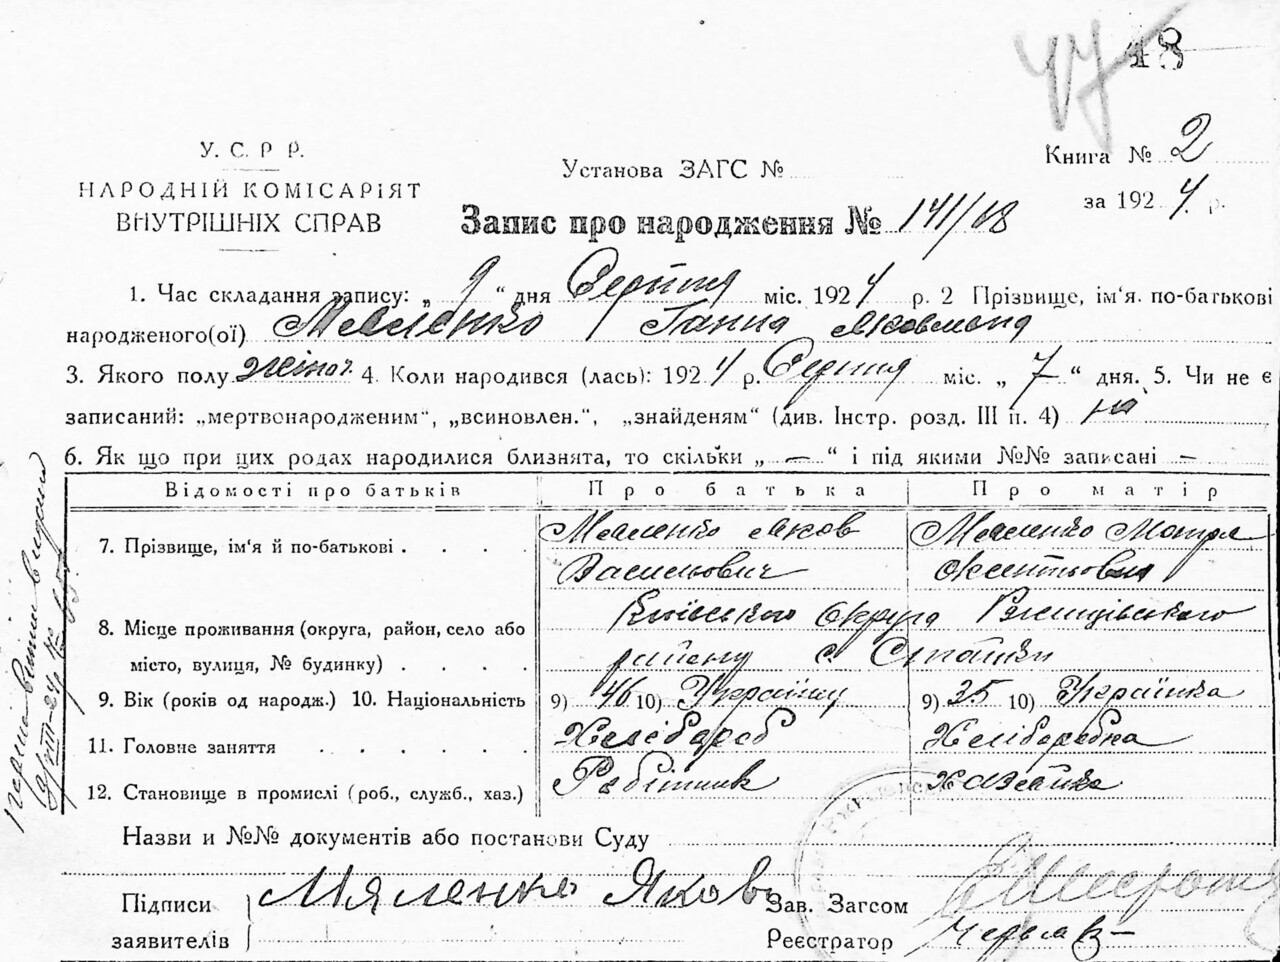 48
У. С. Р Р.
НАРОДНІЙ КОМІСАРІЯТ
ВНУТРІШНІХ СПРАВ
Установа ЗАГС №
Книга № 2
за 1924 р.
Запис про народження № 141/68
1. Час складання запису: „ 9 “ дня Серпня міс. 1924 р. 2 Прізвище, ім‘я. по-батькові
народженого(ої) Мяленко Ганна Яковлевна
3. Якого полу жіноч. 4. Коли народився (лась): 1924 р. Серпня міс. „ 7 “ дня. 5. Чи не є
записаний: „мертвонародженим“, „всиновлен.“, „знайденям“ (див. Інстр. розд. III п. 4) ні
6. Як що при цих родах народилися близнята, то скільки „ — “ і під якими №№ записані —
Відомості про батьків Про батька Про матір
7. Прізвище, ім‘я й по-батькові . . . . Мяленко Яков Мяленко Мотря
Василович
8. Місце проживання (округа, район, село або Київського Округа Ржищівського
місто, вулиця, № будинку) . . . . району с. Стайки
9. Вік (років од народж.) 10. Національність 9) 46 10) Українец 9) 35 10) Українка
11. Головне заняття . . . . . Хлібороб Хліборобка
12. Становище в промислі (роб., служб., хаз.) Робітник Хазяйка
Назви и №№ документів або постанови Суду
Підписи Мяленко Яковъ Зав. Загсом
заявителів Реєстратор